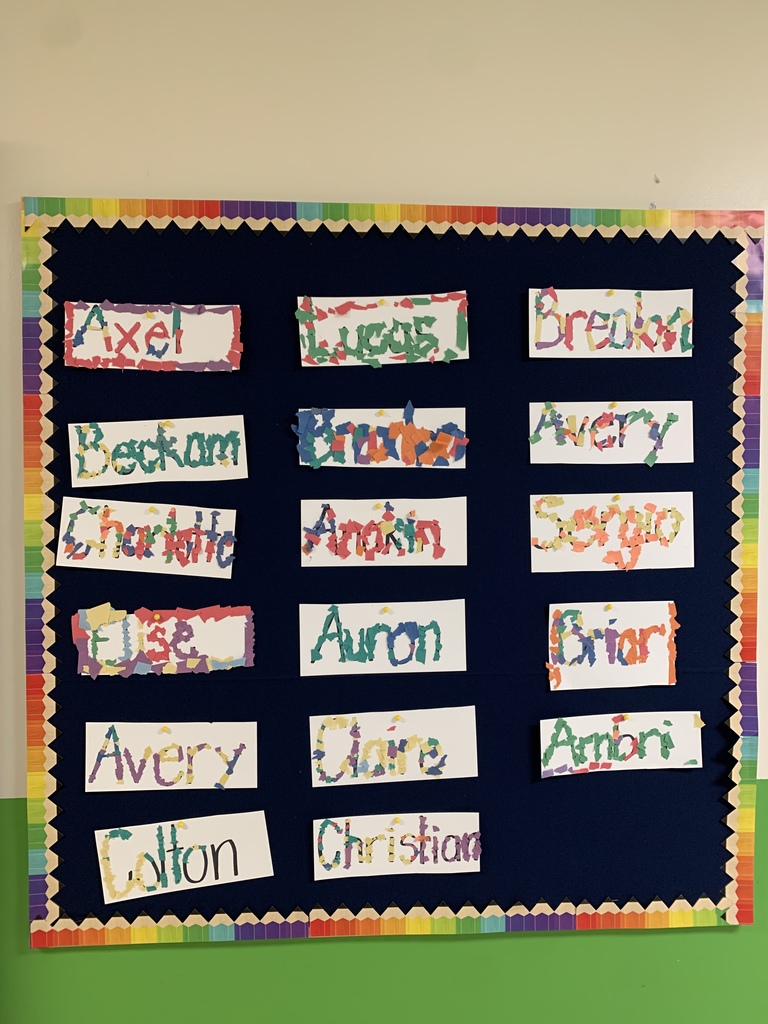 Axel
Lucas
Breckin
Beckam
Avery
Charlotte
Anakin
Sergio
Elise
Auron
Briar
Avery
Claire
Ambri
Colton
Christian